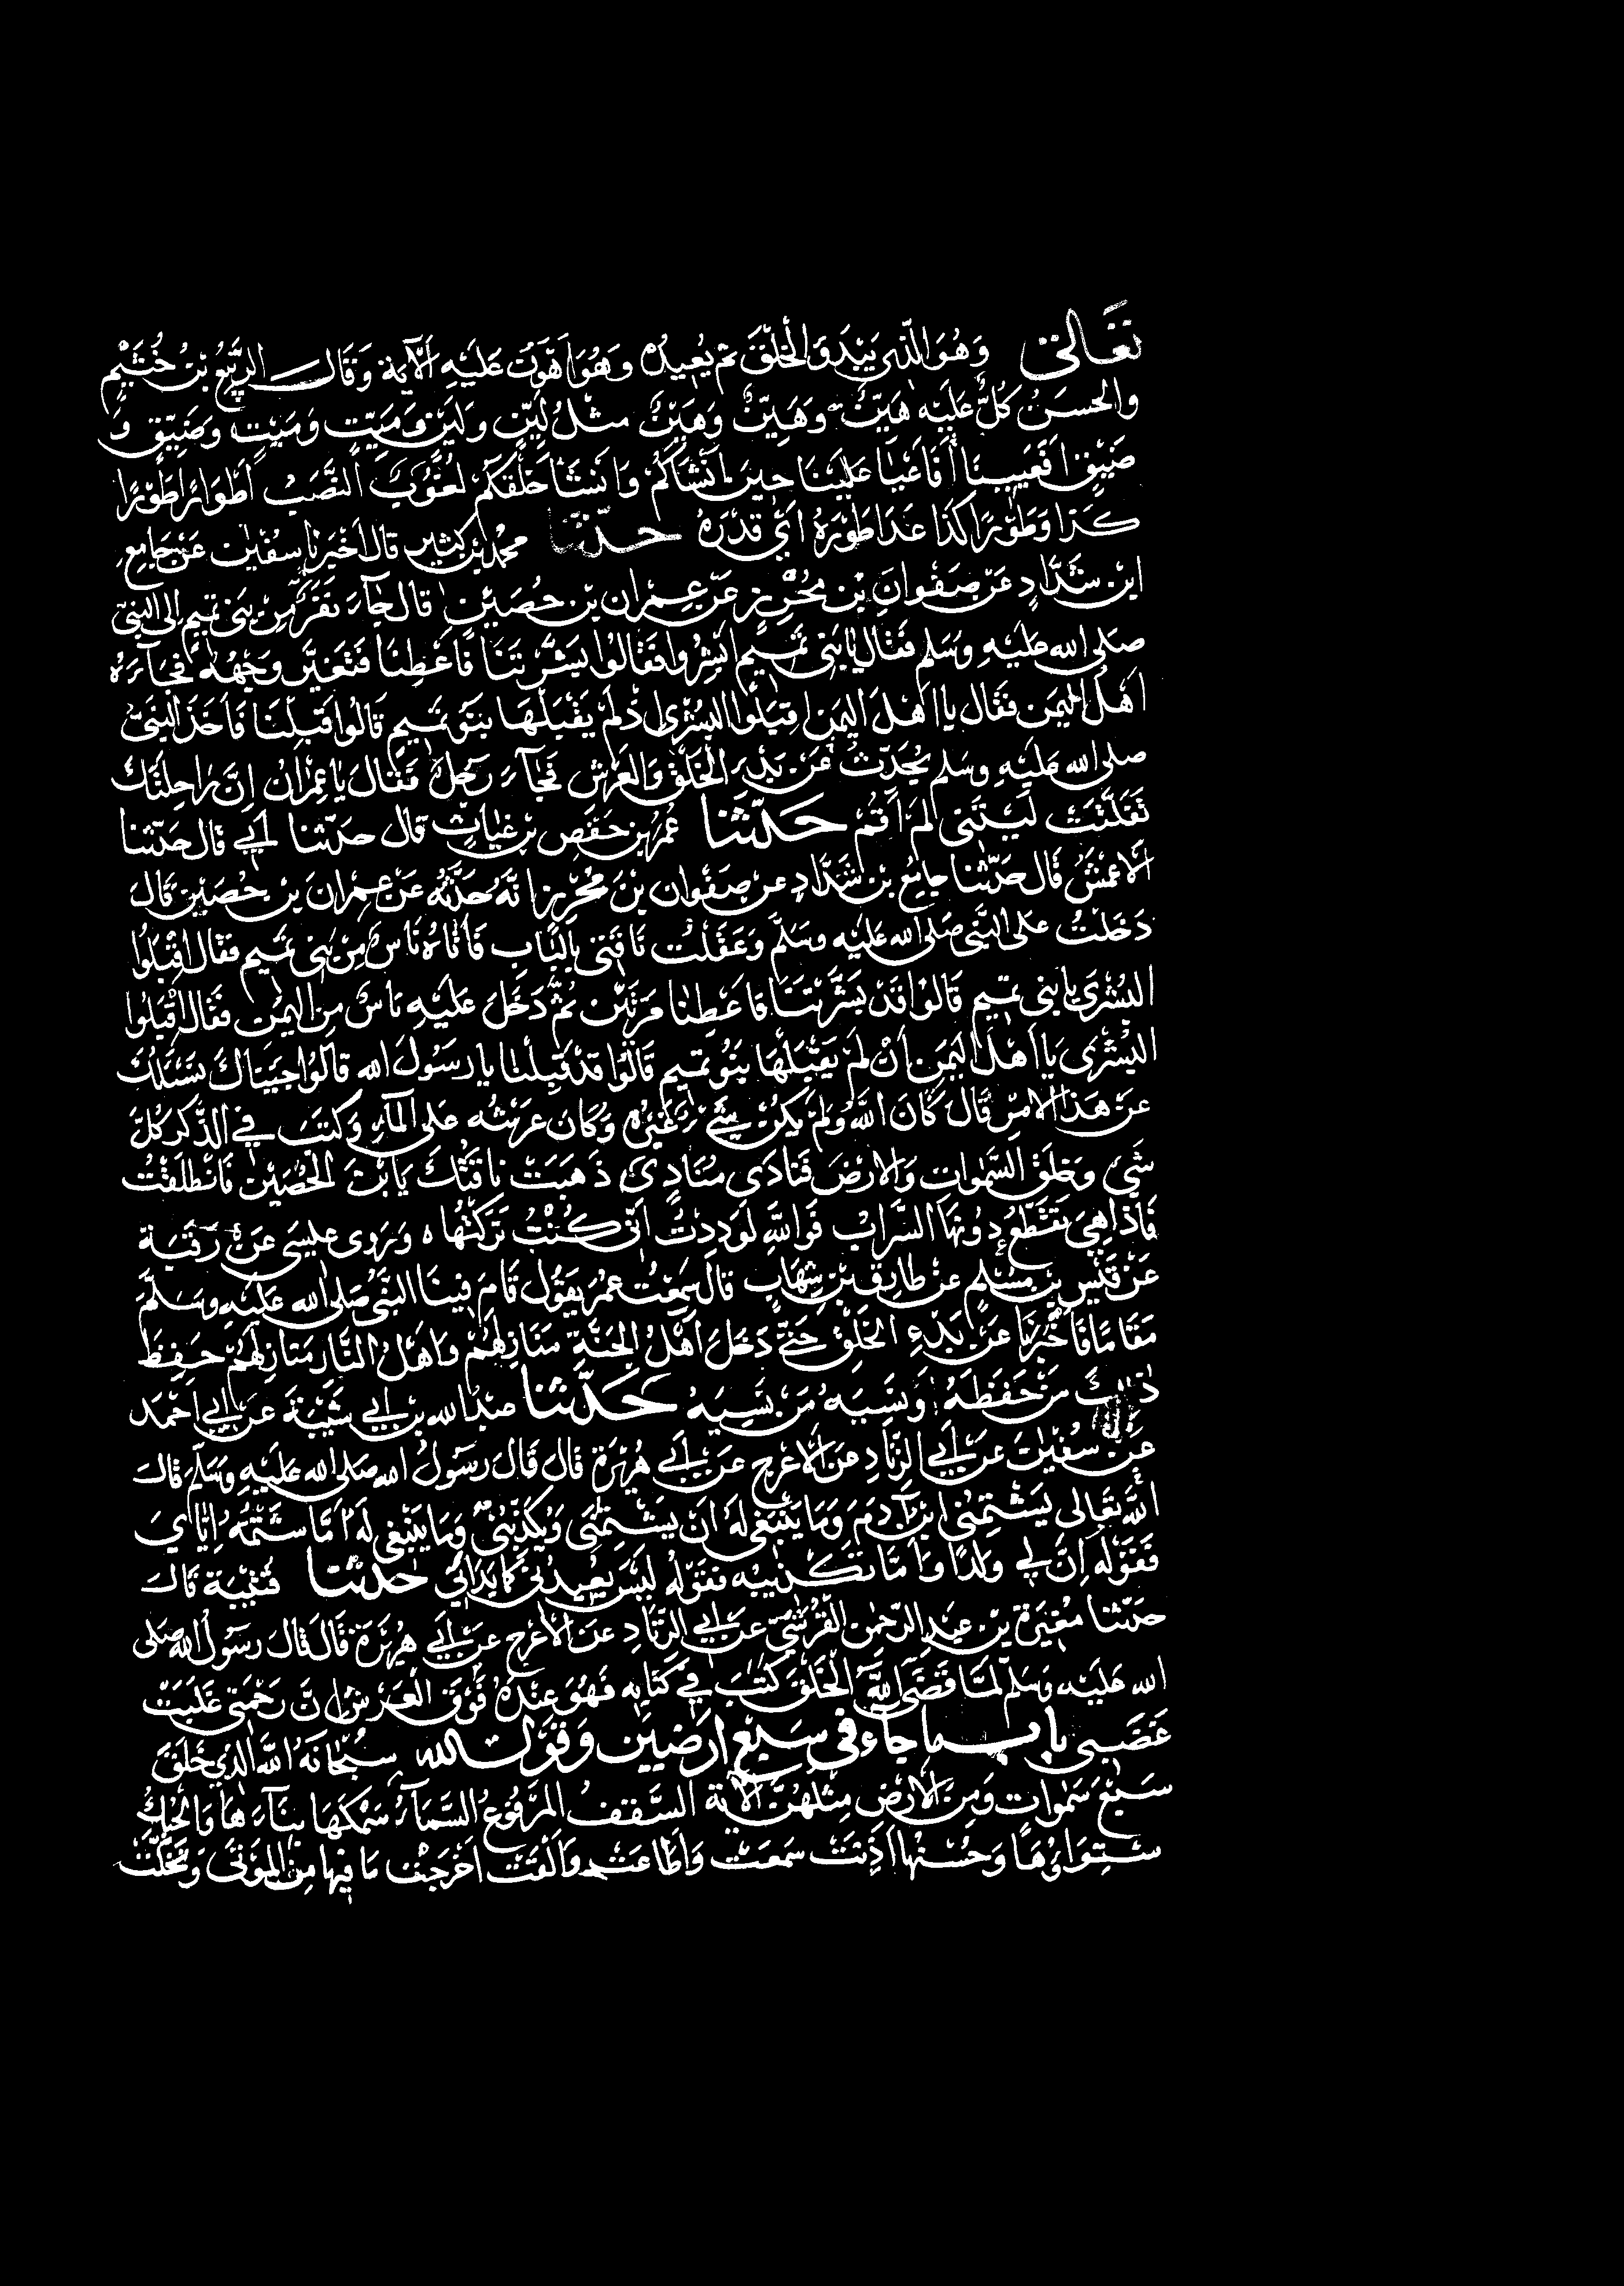 تَعَالىٰ وَهُوَ الَّذِي يَبْدَؤُ الْخَلْقَ ثُمَّ يُعِيدُهُ وَهُوَ اَهْوَنُ عَلَيْهِ اَلْآيَة وَقَالَ الرَّبِيعُ بْنُ خُثَيْمٍ
وَالْحَسَنُ كُلٌّ عَلَيْهِ هَيِّنٌ وَهَيِّنٌ وَهَيْنٌ مِثْلُ لَيِّنٍ وَلَيْنٍ وَمَيِّتٍ وَمَيْتٍ وَضَيِّقٍ وَ
ضَيْقٍ اَفَعَيِينَا اَفَاَعْيَا عَلَيْنَا حِينَ اَنْشَاَكُمْ وَاَنْشَأَ خَلْقَكُمْ لُغُوبٌ اَلنَّصَبُ اَطْوَارًا طَوْرًا
كَذَا وَطَوْرًا كَذَا عَدَا طَوْرَهُ اَيْ قَدْرَهُ حدّثنا محمّد بن كثير قال اَخْبَرَنا سفيٰن عَنْ جَامِعِ
ابن شَدَّادٍ عَنْ صَفْوانَ بْنِ مُحْرِزٍ عَنْ عِمْرانَ بْنِ حُصَيْنٍ قال جَآءَ نَفَرٌ مِنْ بَنِى تَمِيمٍ اِلَى النَّبِيّ
صَلى الله عَلَيْهِ وَسَلم فَقَال يَا بَنِى تَمِيمٍ اَبْشِرُوا فَقالُوا بَشَّرْتَنَا فَاَعْطِنَا فَتَغَيَّرَ وَجْهُهُ فَجَآءَهُ
اَهْلُ الْيَمَن فَقَال يَا اَهْلَ الْيَمَن اِقْبَلُوا الْبُشْرٰى اِذْ لَمْ يَقْبَلْهَا بَنُو تَمِيمٍ قَالُوا قَبِلْنَا فَاَخَذَ النَّبِىُّ
صلى الله عَلَيْهِ وسَلم يُحَدِّثُ عَنْ بَدْءِ الْخَلْقِ وَالْعَرْش فَجَآءَ رَجُلٌ فَقَالَ يَا عِمْرَانُ اِنَّ رَاحِلَتَكَ
تَفَلَّتَتْ لَيْتَنِى لَمْ اَقُمْ حَدّثنا عُمَرُ بن حَفْصِ بْنِ غِيَاثٍ قَال حَدَّثَنا اَبِي قَال حَدَّثَنا
الْاَعْمَشُ قَال حَدَّثَنا جَامِعُ بن شَدَّادٍ عن صَفْوان بْنِ مُحْرِزٍ اَنَّهُ حَدَّثَهُ عَنْ عِمْرانَ بْنِ حُصَيْنٍ قَالَ
دَخَلْتُ عَلَى النَّبِى صَلى الله عَلَيْهِ وسَلَّم وَعَقَلْتُ نَاقَتِى بِالْبَابِ فَاَتَاهُ نَاسٌ مِنْ بَنِى تَمِيمٍ فَقَال اقْبَلُوا
الْبُشْرَى يَا بَنِى تَمِيمٍ قَالوا قَدْ بَشَّرْتَنَا فَاَعْطِنَا مَرَّتَيْنِ ثُمَّ دَخَلَ عَلَيْهِ نَاسٌ مِنَ الْيَمَن فَقَال اقْبَلُوا
الْبُشْرَى يَا اَهْلَ الْيَمَنِ اَنْ لَمْ يَقْبَلْهَا بَنُو تَمِيمٍ قَالُوا قَدْ قَبِلْنَا يا رسَول الله قَالُوا جِيْنَاكَ نَسْئَلُكَ
عَنْ هَذَا الْاَمْرِ قَالَ كَانَ اللّٰهُ وَلَمْ يَكُنْ شَيْءٌ غَيْرُهُ وَكَانَ عَرْشُه عَلَى الْمَآءِ وَكَتَبَ فِي الذِّكْرِ كُلَّ
شَيءٍ وخَلَقَ السَّمٰوات وَالْاَرْضَ فَنَادَى مُنَادٍ ذَهَبَتْ نَاقَتُكَ يَا بْنَ الْحُصَيْنِ فَانْطَلَقْتُ
فَاِذَا هِىَ يَقْطَعُ دُونَهَا السَّرَابُ فَوَاللَّهِ لَوَدِدْتُ اَنِّى كُنْتُ تَرَكْتُهَا ه وَرَوى عِيسَى عَنْ رَقَبَةَ
عَنْ قَيْسِ بْنِ مُسْلِمٍ عَنْ طَارِقِ بْنِ شِهَابٍ قال سَمِعْتُ عُمَرَ يَقُول قَامَ فِينَا النَّبِىُّ صَلى الله عَليْهِ وَسَلَّمَ
مَقَامًا فَاَخْبَرَنَا عَنْ بَدْءِ الْخَلْقِ حَتّٰى دَخَلَ اَهْلُ الْجَنَّةِ مَنَازِلَهُمْ وَاَهْلُ النَّارِ مَنَازِلَهُمْ حَفِظَ
ذٰلِكَ مَنْ حَفِظَهُ وَنَسِيَهُ مَنْ نَسِيَهُ حَدّثنا عبْدُ الله بْنُ اَبِي شَيْبَةَ عَنْ اَبِي اَحْمَدَ
عَنْ سُفْيٰنَ عَنْ اَبِي الزِّنَادِ عَنِ الْاَعْرَجِ عَنْ اَبِي هُرَيْرَةَ قَالَ قَالَ رَسُولُ الله صَلى الله عَلَيْهِ وَسَلَّمَ قَالَ
اللَّهُ تَعَالَى يَشْتِمُنِى ابْنُ آدَمَ وَمَا يَنْبَغِى لَهُ اَنْ يَشْتِمَنِى وَيُكَذِّبُنِى وَمَا يَنْبَغِى لَهُ اَمَّا شَتْمُهُ اِيَّايَ
فَقَوْلُه اِنَّ لِي وَلَدًا وَاَمَّا تَكْذِيبُه فَقَوْلُهُ لَيْسَ يُعِيدُنِى كَمَا بَدَاَنِي حَدّثنا قُتَيْبَة قَالَ
حَدّثنا مُغِيرَةُ بْن عَبْدِ الرَّحْمٰن الْقُرَشِىُّ عَنْ اَبِي الزِّنَادِ عَنِ الْاَعْرَجِ عَنْ اَبِي هُرَيْرَةَ قَالَ قَالَ رَسُولُ اللّٰهِ صَلى
الله عَلَيْهِ وَسَلَّم لَمَّا قَضَى اللّٰهُ الْخَلْقَ كَتَبَ فِي كِتَابِهِ فَهُوَ عِنْدَهُ فَوْقَ الْعَرْشِ اِنَّ رَحْمَتِى غَلَبَتْ
غَضَبِى بَاب مَا جَاءَ فى سَبْعِ اَرَضِينَ وَقَوْلِ اللّٰه سُبْحَانَهُ اللَّهُ الَّذِي خَلَقَ
سَبْعَ سَمٰوات وَمِنَ الْاَرْضِ مِثْلَهُنَّ الْآيَة السَّقْفِ الْمَرْفُوعِ السَّمَآءُ سَمْكَهَا بِنَآءَهَا وَالْحُبُكُ
سْتِوَاؤُهَا وَحُسْنُهَا اَذِنَتْ سَمِعَتْ وَاَطَاعَتْ وَاَلْقَتْ اَخْرَجَتْ مَا فِيهَا مِنَ الْمَوْتَى وَتَخَلَّتْ